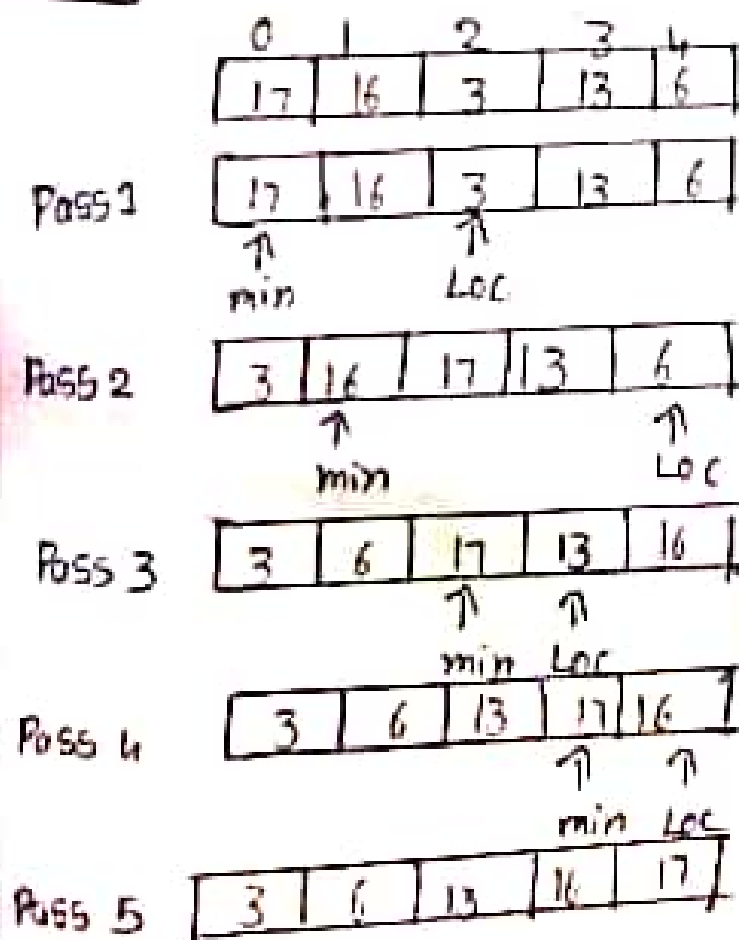 0 1 2 3 4
17 16 3 13 6
Pass 1 17 16 3 13 6
min Loc
Pass 2 3 16 17 13 6
min Loc
Pass 3 3 6 17 13 16
min Loc
Pass 4 3 6 13 17 16
min Loc
Pass 5 3 6 13 16 17